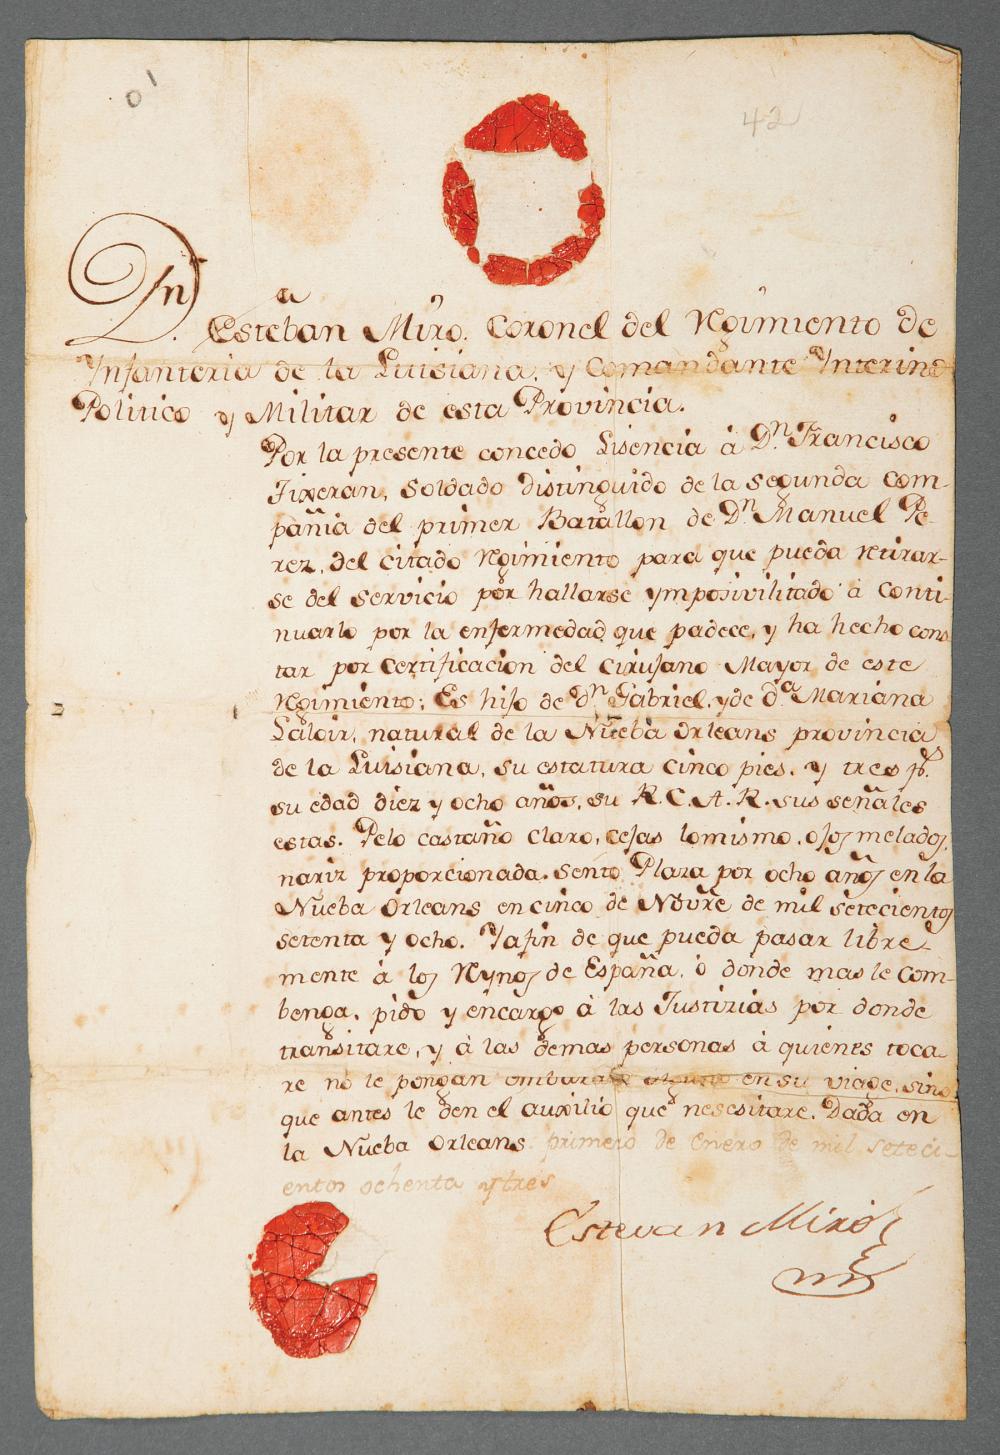 42
Dn. Esteban Miro. Coronel del Rgimiento de
Ynfanteria de la Luisiana, y Comandante Interino
Politico y Militar de esta Provincia.
Por la presente concedo Lisencia à Dn. Francisco
Fixeran, Soldado distinguido de la segunda com-
pañia del primer Batallon de Dn. Manuel Pe-
rez, del citado Rgimiento para que pueda retirar-
se del servicio por hallarse ymposivilitado à conti-
nuarlo por la enfermedad que padece, y ha hecho cons
tar por certificacion del cirujano Mayor de este
Rgimiento; Es hijo de Dn. Gabriel, y de da. Mariana
Laloir, natural de la Nueba Orleans provincia
de la Luisiana, su estatura cinco pies, y tres ps.
su edad diez y ocho años, su R.C.A.R. sus señales
estas. Pelo castaño claro, cejas lo mismo, ojos melados,
nariz proporcionada. Sento Plaza por ocho años en la
Nueba Orleans en cinco de Novre de mil setecientos
setenta y ocho. Y afin de que pueda pasar libre-
mente à los Rynos de España, ò donde mas le com-
benga, pido y encargo à las Justizias por donde
transitare, y à las demas personas à quienes toca
re no le pongan embarazo alguno en su viage, sino
que antes le den el auxilio que nesesitare. Dada en
la Nueba Orleans primero de Enero de mil seteci-
entos ochenta y tres
Estevan Miró